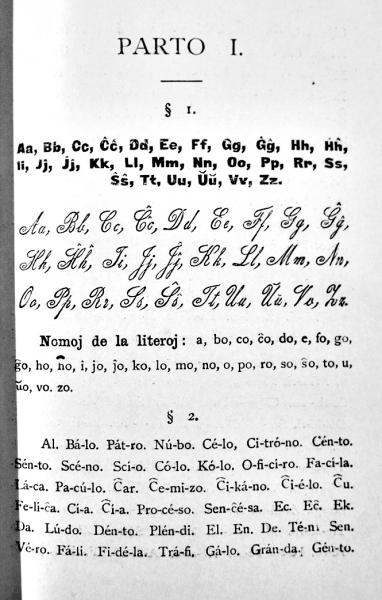 PARTO I.
§ 1.
Aa, Bb, Cc, Ĉĉ, Dd, Ee, Ff, Gg, Ĝĝ, Hh, Ĥĥ,
Ii, Jj, Ĵĵ, Kk, Ll, Mm, Nn, Oo, Pp, Rr, Ss,
Ŝŝ, Tt, Uu, Ŭŭ, Vv, Zz.
Aa, Bb, Cc, Ĉĉ, Dd, Ee, Ff, Gg, Ĝĝ,
Hh, Ĥĥ, Ii, Jj, Ĵĵ, Kk, Ll, Mm, Nn,
Oo, Pp, Rr, Ss, Ŝŝ, Tt, Uu, Ŭŭ, Vv, Zz.
Nomoj de la literoj: a, bo, co, ĉo, do, e, fo, go,
ĝo, ho, ĥo, i, jo, ĵo, ko, lo, mo, no, o, po, ro, so, ŝo, to, u,
ŭo, vo. zo.
§ 2.
Al. Bá-lo. Pát-ro. Nú-bo. Cé-lo, Ci-tró-no. Cén-to.
Sén-to. Scé-no. Sci-o. Có-lo. Kó-lo. O-fi-cí-ro. Fa-cí-la.
Lá-ca. Pa-cú-lo. Ĉar. Ĉe-mi-zo. Ĉi-ká-no. Ĉi-é-lo. Ĉu.
Fe-lí-ĉa. Cí-a. Ĉí-a. Pro-cé-so. Sen-ĉé-sa. Ec. Eĉ. Ek.
Da. Lú-do. Dén-to. Plén-di. El. En. De. Té-ni. Sen.
Vé-ro. Fá-li. Fi-dé-la. Trá-fi. Gá-lo. Grán-da. Gén-to.